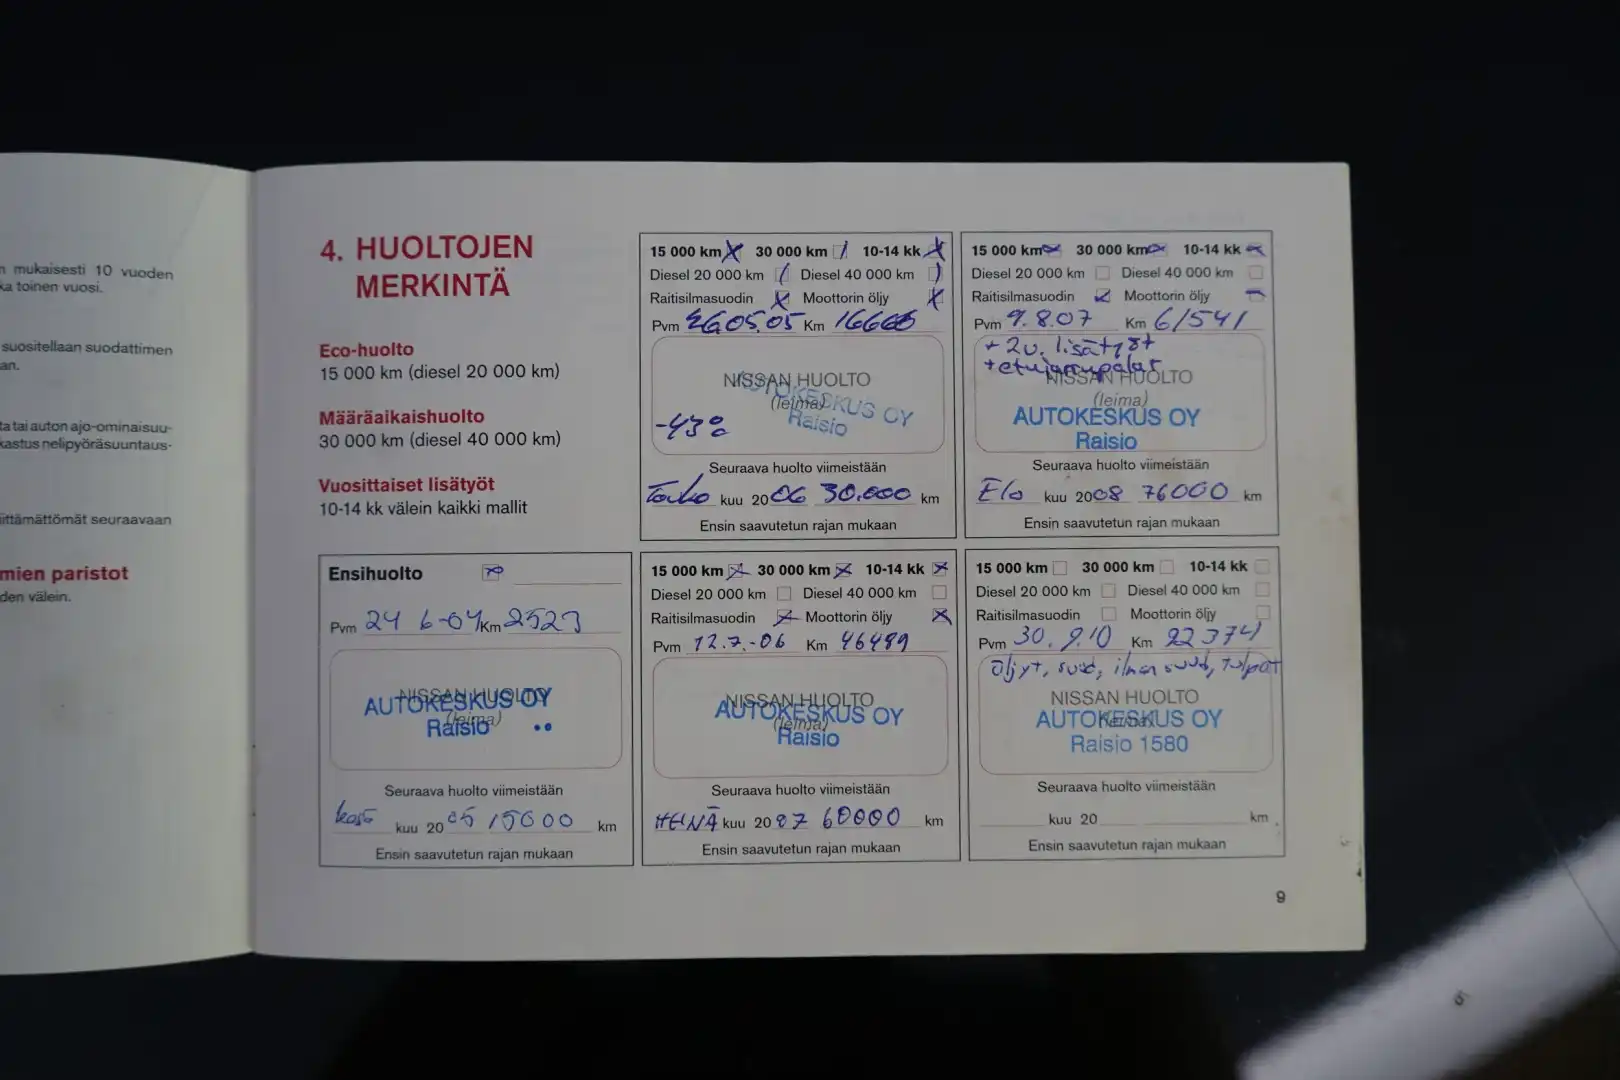 n mukaisesti 10 vuoden
ka toinen vuosi.
suositellaan suodattimen
an.
ta tai auton ajo-ominaisuu-
kastus nelipyöräsuuntaus-
iittämättömät seuraavaan
mien paristot
den välein.
4. HUOLTOJEN
MERKINTÄ
Eco-huolto
15 000 km (diesel 20 000 km)
Määräaikaishuolto
30 000 km (diesel 40 000 km)
Vuosittaiset lisätyöt
10-14 kk välein kaikki mallit
15 000 km 30 000 km 10-14 kk
Diesel 20 000 km Diesel 40 000 km
Raitisilmasuodin Moottorin öljy
Pvm 26.05.05 Km 16666
NISSAN HUOLTO
(leima)
AUTOKESKUS OY
Raisio
-43°
Seuraava huolto viimeistään
Touko kuu 2006 30.000 km
Ensin saavutetun rajan mukaan
15 000 km 30 000 km 10-14 kk
Diesel 20 000 km Diesel 40 000 km
Raitisilmasuodin Moottorin öljy
Pvm 9.8.07 Km 61541
+ 2v. lisätyöt
+ etujarrupalat
NISSAN HUOLTO
(leima)
AUTOKESKUS OY
Raisio
Seuraava huolto viimeistään
Elo kuu 2008 76000 km
Ensin saavutetun rajan mukaan
Ensihuolto
Pvm 24 6-04 Km 2523
NISSAN HUOLTO
AUTOKESKUS OY
(leima)
Raisio
Seuraava huolto viimeistään
kesä kuu 2005 15000 km
Ensin saavutetun rajan mukaan
15 000 km 30 000 km 10-14 kk
Diesel 20 000 km Diesel 40 000 km
Raitisilmasuodin Moottorin öljy
Pvm 12.7.-06 Km 46489
NISSAN HUOLTO
AUTOKESKUS OY
(leima)
Raisio
Seuraava huolto viimeistään
HEINÄ kuu 2007 60000 km
Ensin saavutetun rajan mukaan
15 000 km 30 000 km 10-14 kk
Diesel 20 000 km Diesel 40 000 km
Raitisilmasuodin Moottorin öljy
Pvm 30.9.10 Km 92374
öljyt, suod, ilman suod, tulpat
NISSAN HUOLTO
AUTOKESKUS OY
(leima)
Raisio 1580
Seuraava huolto viimeistään
kuu 20 km
Ensin saavutetun rajan mukaan
9